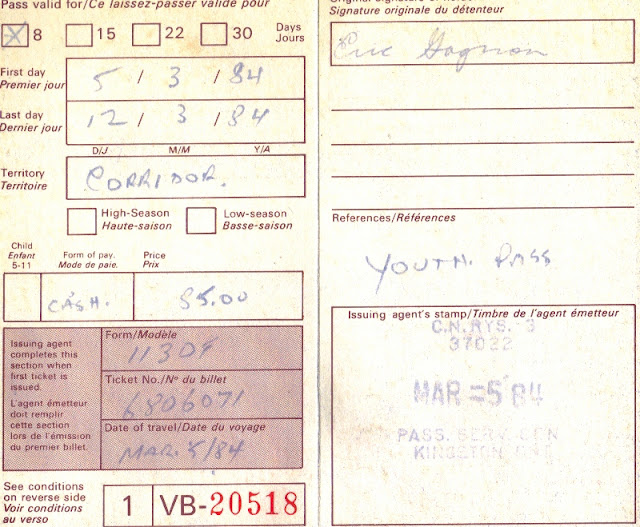 Pass valid for/Ce laissez-passer valide pour
X 8 15 22 30 Days
Jours
First day
Premier jour
5 / 3 / 84
Last day
Dernier jour
12 / 3 / 84
D/J M/M Y/A
Territory
Territoire
CORRIDOR.
High-Season
Haute-saison
Low-season
Basse-saison
Child
Enfant
5-11
Form of pay.
Mode de paie.
Price
Prix
CASH. 85.00
Issuing agent
completes this
section when
first ticket is
issued.
L'agent émetteur
doit remplir
cette section
lors de l'émission
du premier billet.
Form/Modèle
Ticket No./Nº du billet
6806071
Date of travel/Date du voyage
MAR. 5/84
See conditions
on reverse side
Voir conditions
au verso
1 VB-20518
Signature originale du détenteur
Eric Gagnon
References/Références
YOUTH. PASS
Issuing agent's stamp/Timbre de l'agent émetteur
C.N.RYS.-3
37022
MAR -5 84
PASS. SERV. CEN
KINGSTON ONT